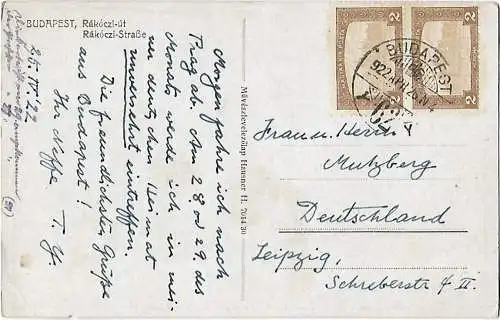 BUDAPEST, Rákóczi-út
Rákóczi-Straße
26. IV. 22
Morgen fahre ich nach
Prag ab. Am 28. od 29. des
Monats werde ich in mei-
ner deutschen Heimat
unversehrt eintreffen.
Die freundlichsten Grüße
aus Budapest!
Ihr Neffe T. G.
Művészlevelezőlap Hausner H. 7044 30
2
2
BUDAPEST
922
62
Frau u. Herrn
Mutzberg
Deutschland
Leipzig,
Schreberstr 4 II.